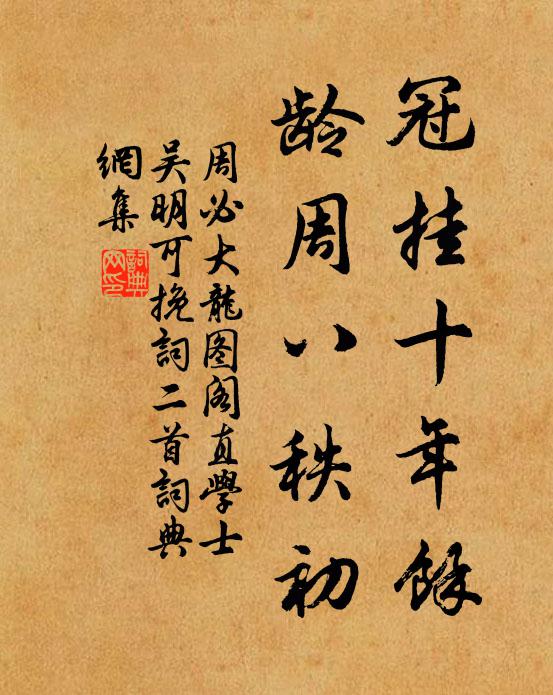 冠挂十年餘
龄周八秩初
周必大龍图阁直學士
吴明可挽詞二首詞典
網集
詞典
网印